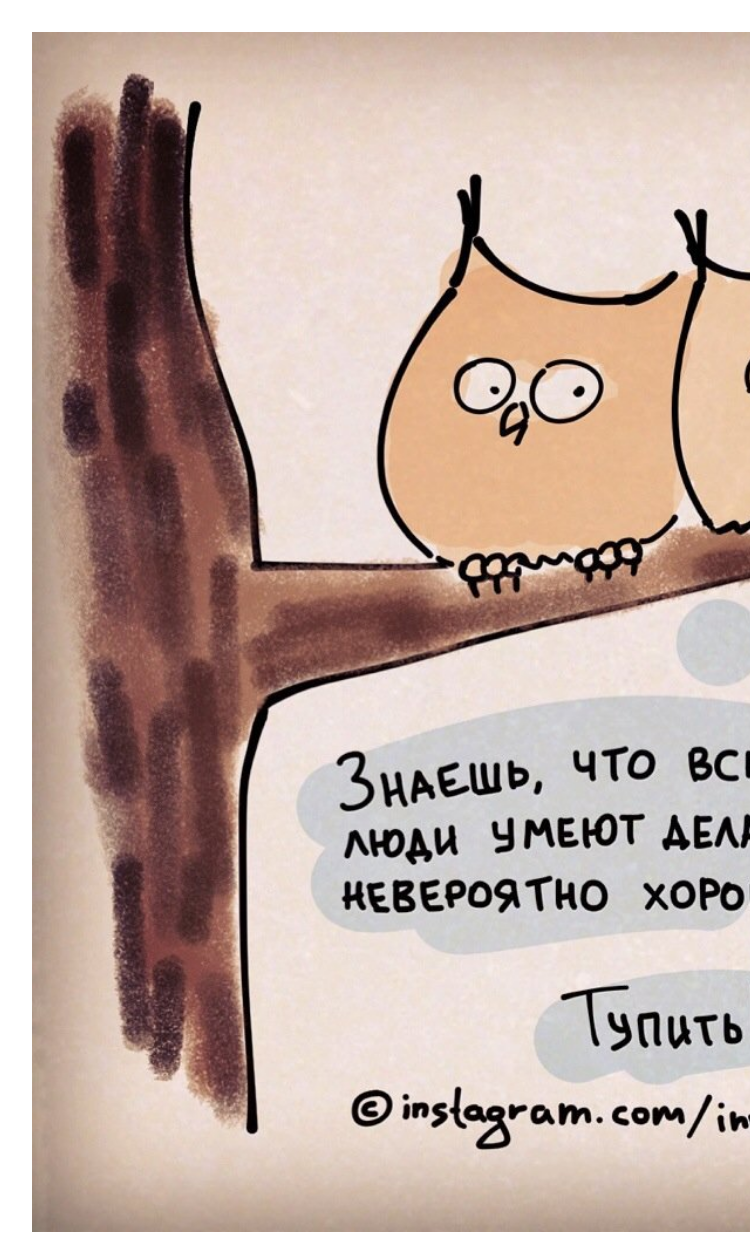 Знаешь, что вс
люди умеют дел
невероятно хоро
Тупить
©instagram.com/in